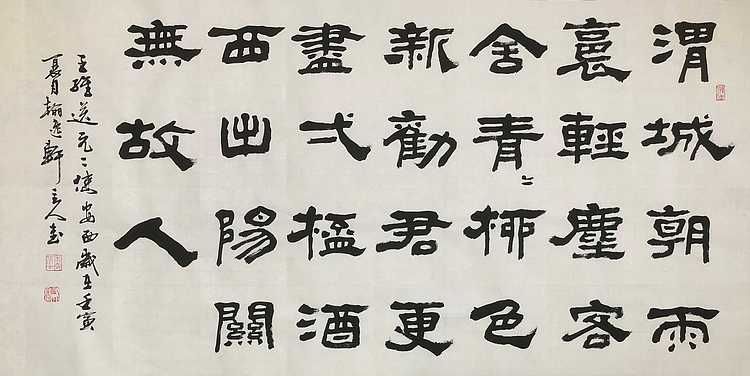 渭城朝雨
裛輕塵客
舍青〻柳色
新勸君更
盡弌桮酒
西出陽關
無故人
王維送元二使安西歲在壬寅
夏月翰逸軒主人書